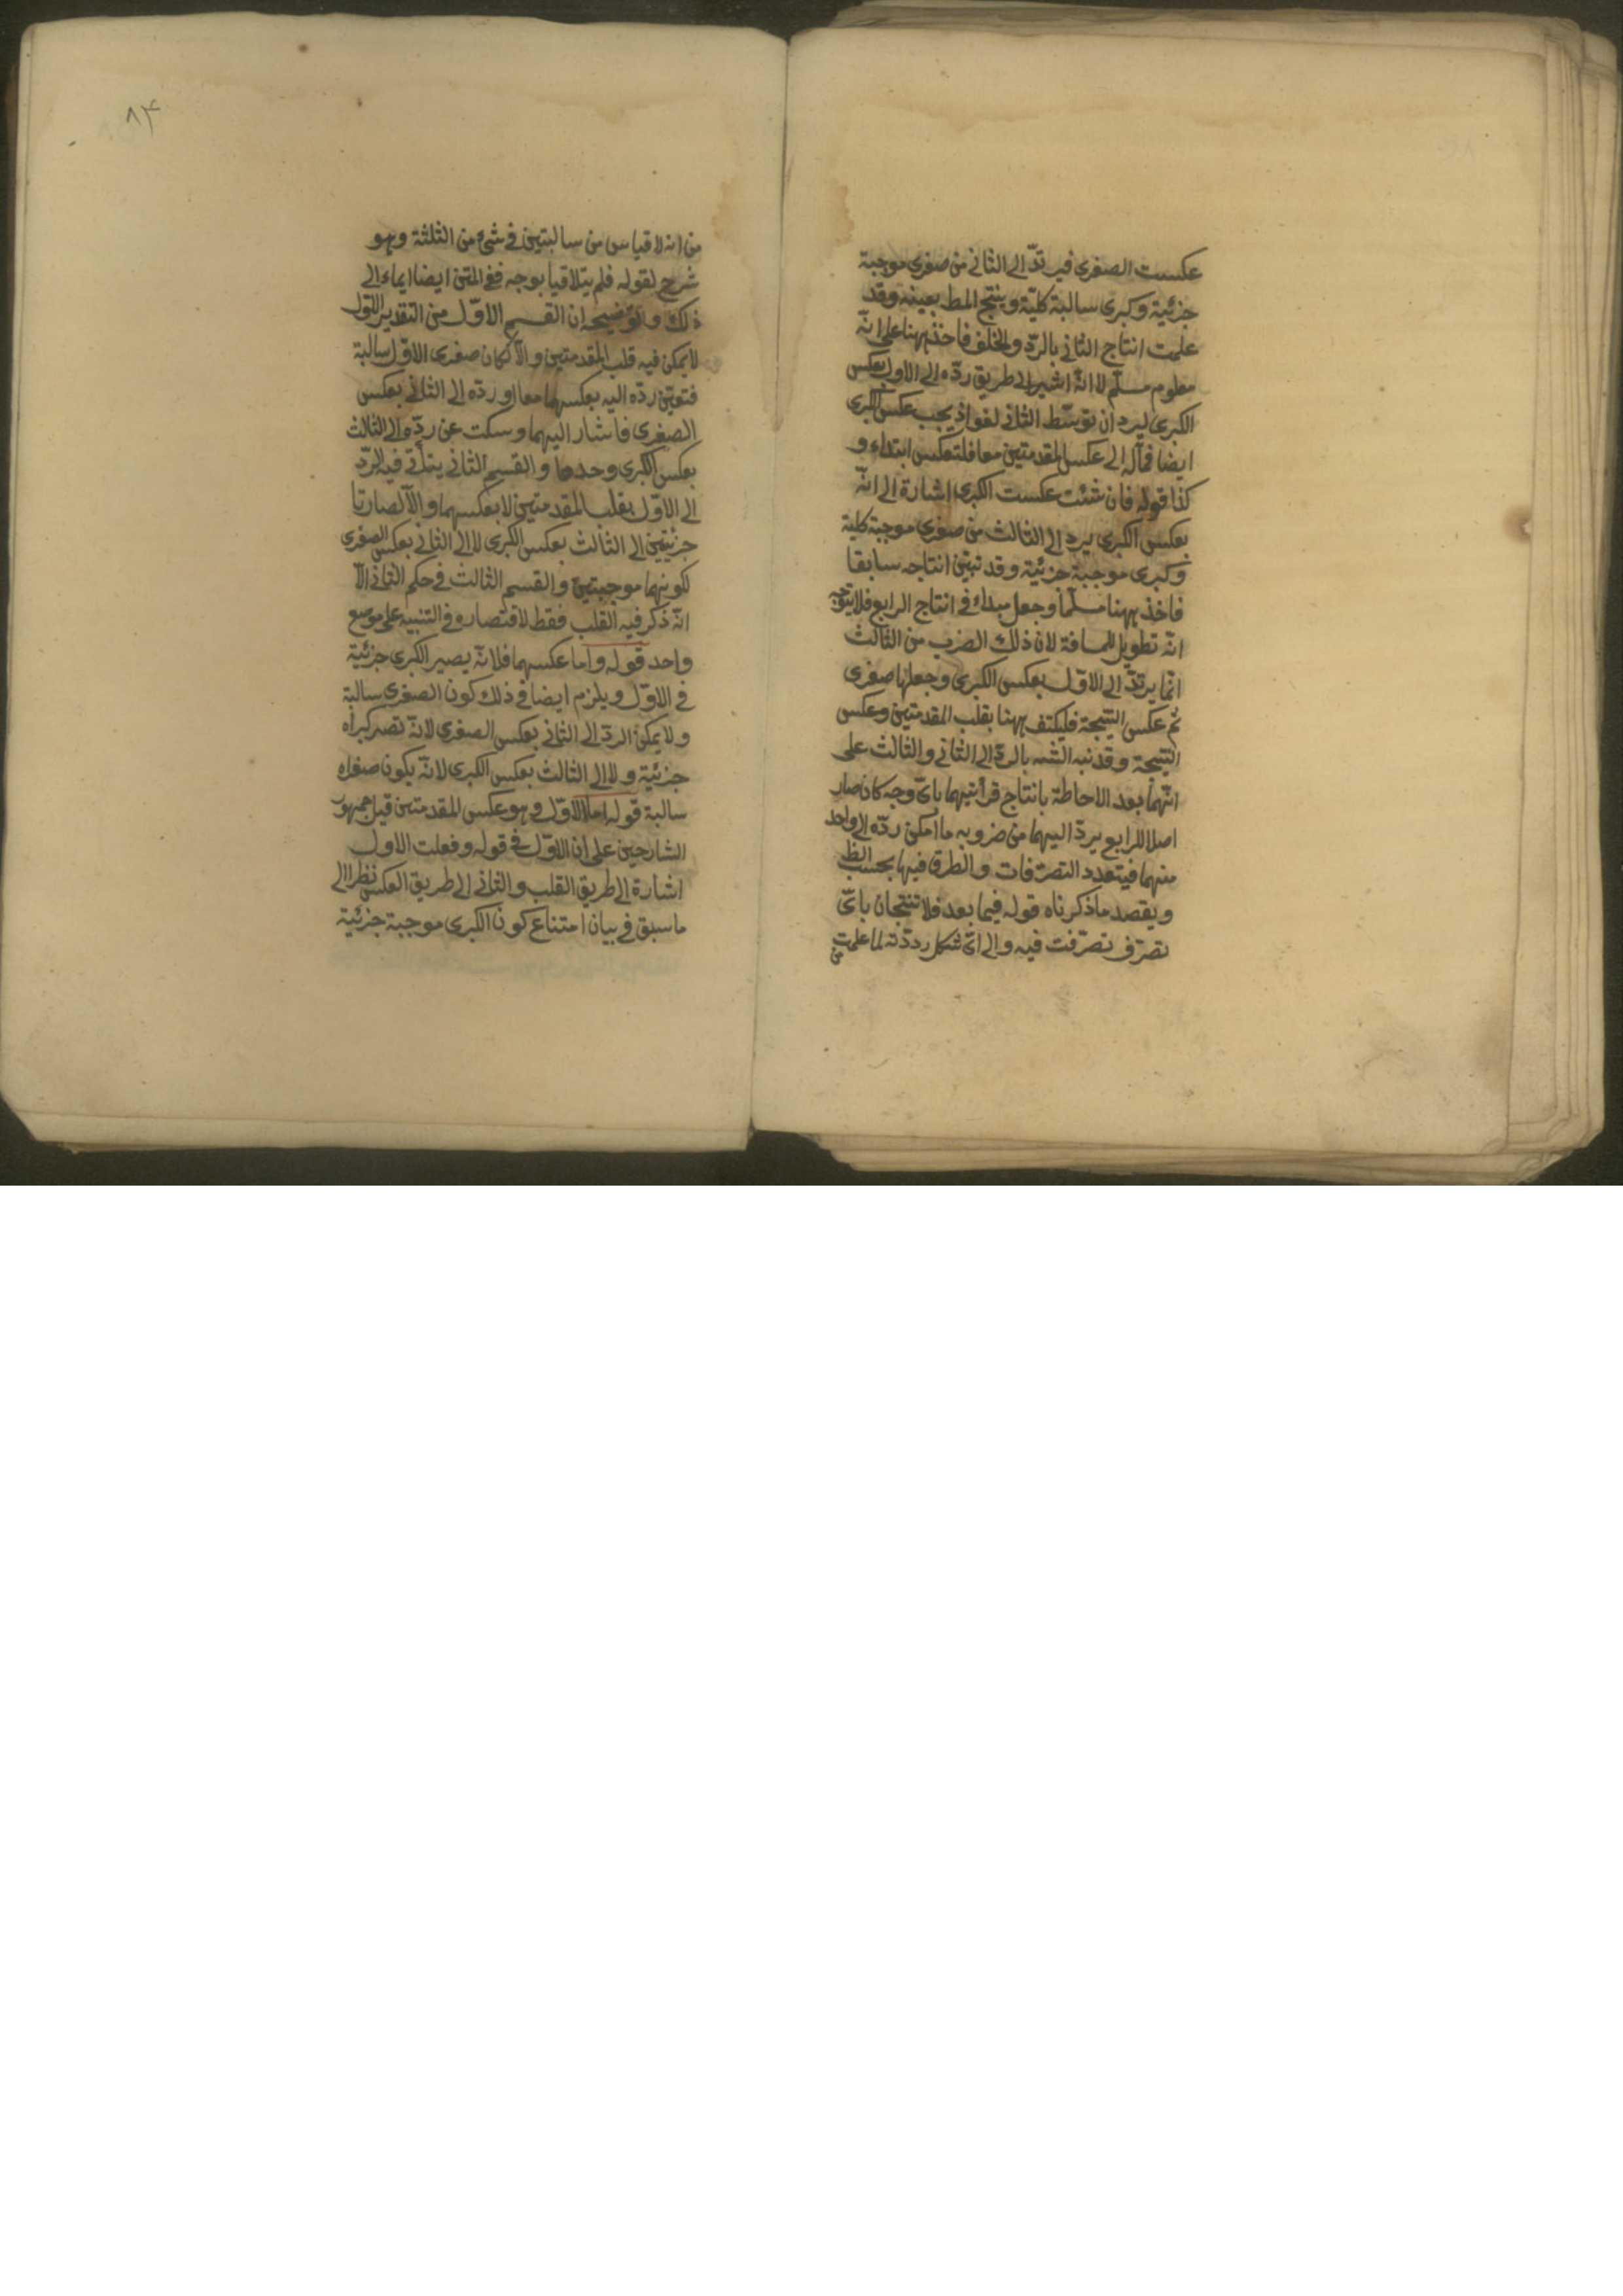 عكست الصغرى فيرتدّ الى الثانى من صغرى موجبة
جزئية وكبرى سالبة كليّة وينتج المط بعينه وقد
علمت انتاج الثانى بالردّ والخلف فاخذ ههنا على انّه
معلوم مسلّم لا انّه اشير الى طريق ردّه الى الاول بعكس
الكبرى ليرد ان توسّط الثانى لغو اذ يجب عكس الكبرى
ايضا فمآله الى عكس المقدمتين معا فلتعكس ابتداء و
كذا قوله فان شئت عكست الكبرى اشارة الى انّه
بعكس الكبرى يرد الى الثالث من صغرى موجبة كلية
وكبرى موجبة جزئية وقد تبيّن انتاجه سابقا
فاخذ ههنا مسلّما وجعل مبداء فى انتاج الرابع فلا يتوجّه
انّه تطويل للمسافة لان ذلك الضرب من الثالث
انّما يرتدّ الى الاوّل بعكس الكبرى وجعلها صغرى
ثم عكس النتيجة فليكتف ههنا بقلب المقدمتين وعكس
النتيجة وقد نبه الشه بالردّ الى الثانى والثالث على
انّهما بعد الاحاطة بانتاج قرائنهما باىّ وجه كان صار
اصلا للرابع يردّ اليهما من ضروبه ما امكن ردّه الى واحد
منهما فيتعدد التصرّفات والطرق فيها بحسب الظ
ويقصد ما ذكرناه قوله فيما بعد فلا تنتجان باىّ
تصرّف تصرّفت فيه والى اىّ شكل رددته لما علمت
من
٨٣
من انه لا قياس من سالبتين فى شئ من الثلثة وهو
شرح لقوله فلم يتلاقيا بوجه ففى المتن ايضا ايماء الى
ذلك وتوضيحه ان القسم الاوّل من التقدير الاول
لا يمكن فيه قلب المقدمتين والّا لكان صغرى الاوّل سالبة
فتعيّن ردّه اليه بعكسهما معا او ردّه الى الثانى بعكس
الصغرى فاشار اليهما وسكت عن ردّه الى الثالث
بعكس الكبرى وحدها والقسم الثانى يتأتى فيه الردّ
الى الاوّل بقلب المقدمتين لا بعكسهما والّا لصارتا
جزئيتين الى الثالث بعكس الكبرى لا الى الثانى بعكس الصغرى
لكونهما موجبتين والقسم الثالث فى حكم الثانى الّا
انّه ذكر فيه القلب فقط لاقتصاره فى التنبيه على موضع
واحد قوله واما عكسهما فلانّه يصير الكبرى جزئية
فى الاوّل ويلزم ايضا فى ذلك كون الصغرى سالبة
ولا يمكن الردّ الى الثانى بعكس الصغرى لانّه تصير كبراه
جزئية ولا الى الثالث بعكس الكبرى لانّه يكون صغراه
سالبة قوله اما الاوّل وهو عكس المقدمتين قيل جمهور
الشارحين على ان الاوّل فى قوله وفعلت الاول
اشارة الى طريق القلب والثانى الى طريق العكس نظرا الى
ما سبق فى بيان امتناع كون الكبرى موجبة جزئية